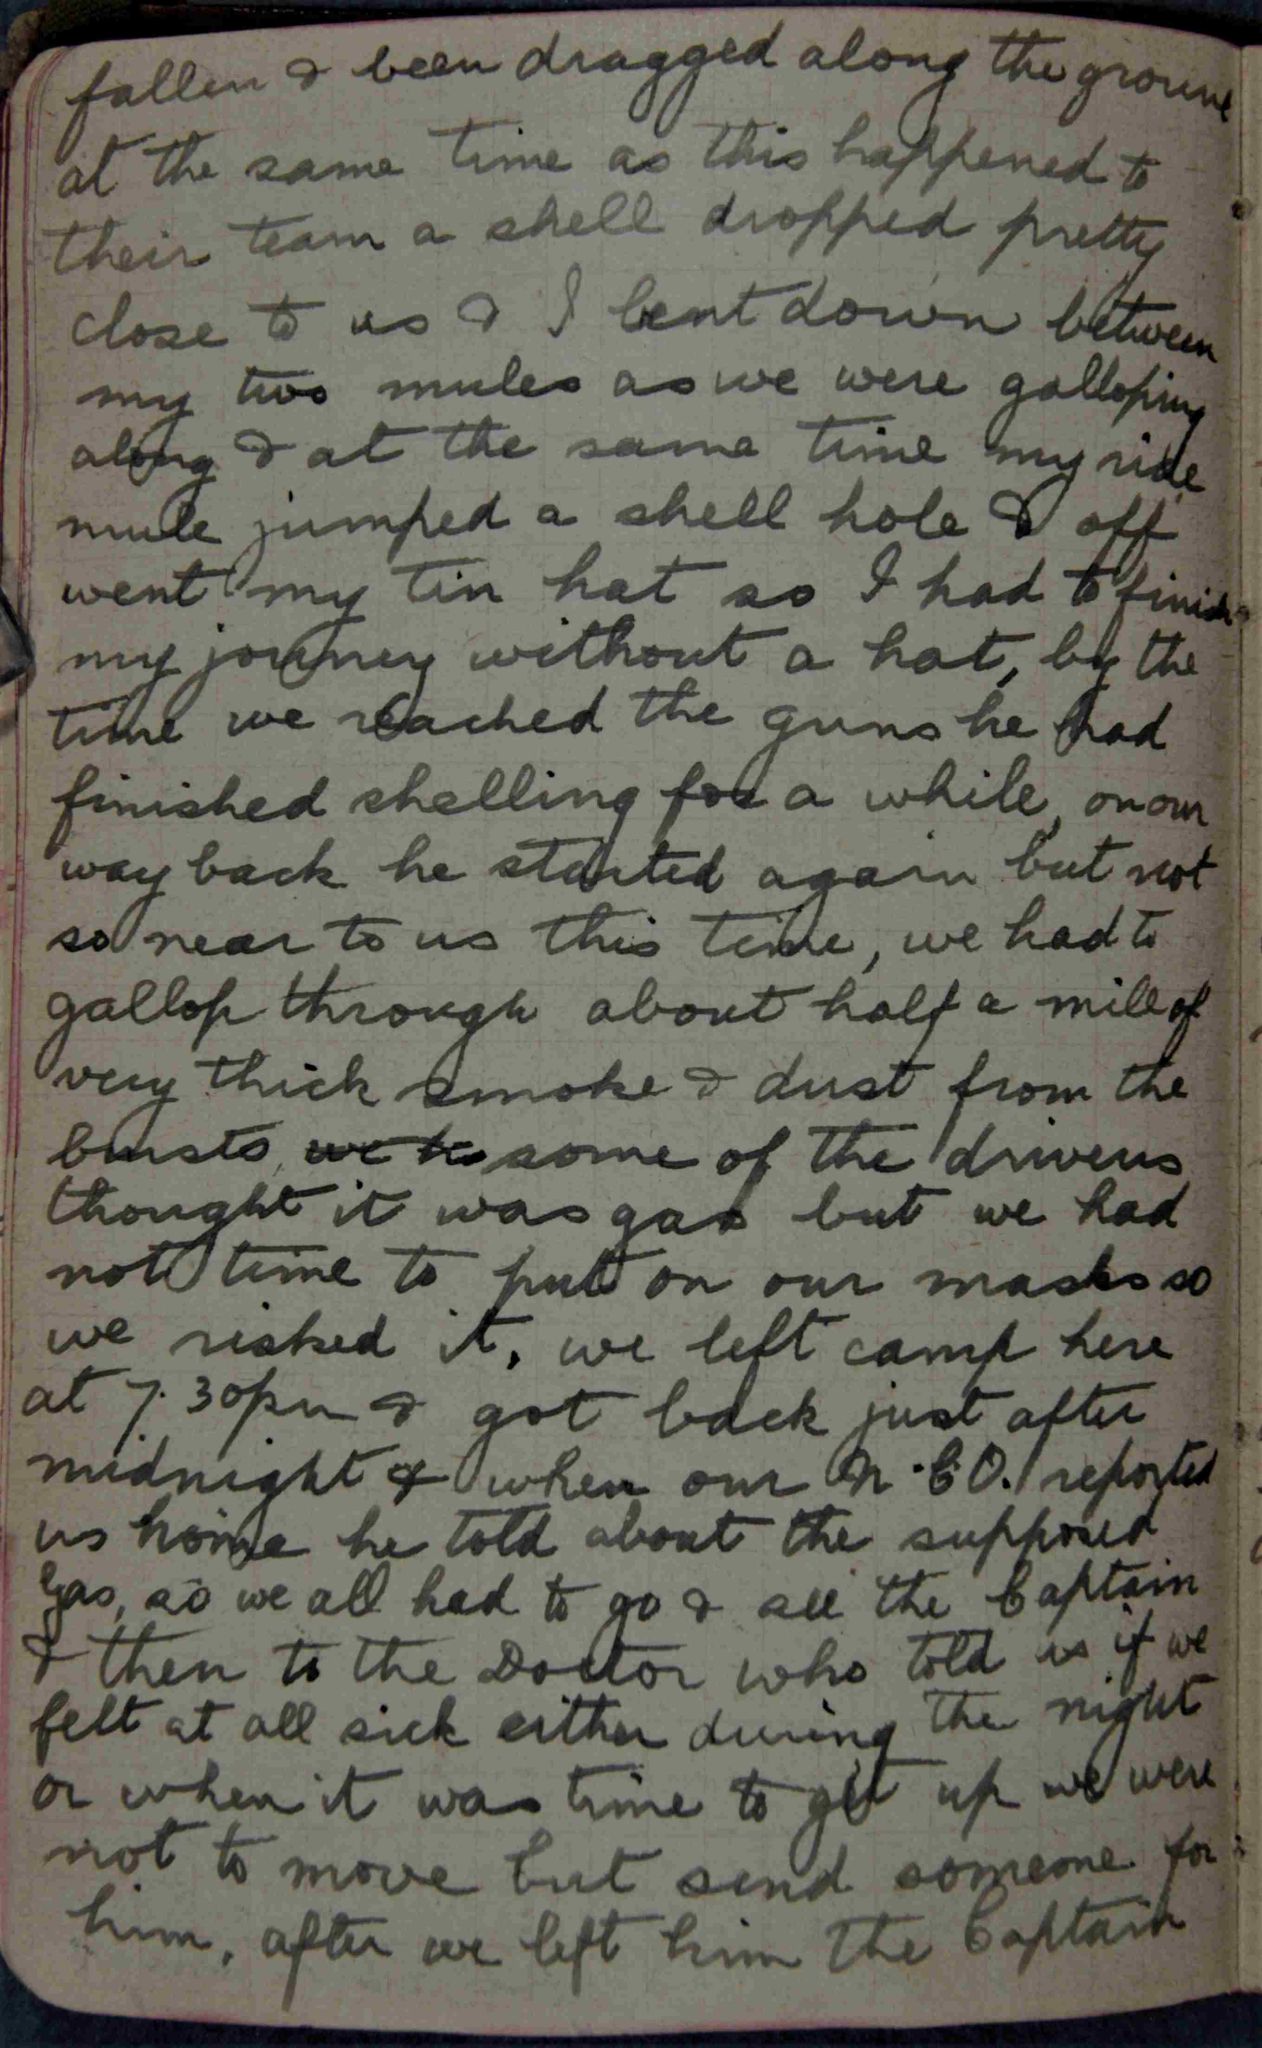 fallen & been dragged along the ground
at the same time as this happened to
their team a shell dropped pretty
close to us & I bent down between
my two mules as we were galloping
along & at the same time my ride
mule jumped a shell hole & off
went my tin hat so I had to finish
my journey without a hat, by the
time we reached the guns he had
finished shelling for a while, on our
way back he started again but not
so near to us this time, we had to
gallop through about half a mile of
very thick smoke & dust from the
bursts, we h some of the drivers
thought it was gas but we had
not time to put on our masks so
we risked it, we left camp here
at 7.30pm & got back just after
midnight & when our N.C.O. reported
us home he told about the supposed
Gas, so we all had to go & see the Captain
& then to the Doctor who told us if we
felt at all sick either during the night
or when it was time to get up we were
not to move but send someone for
him, after we left him the Captain